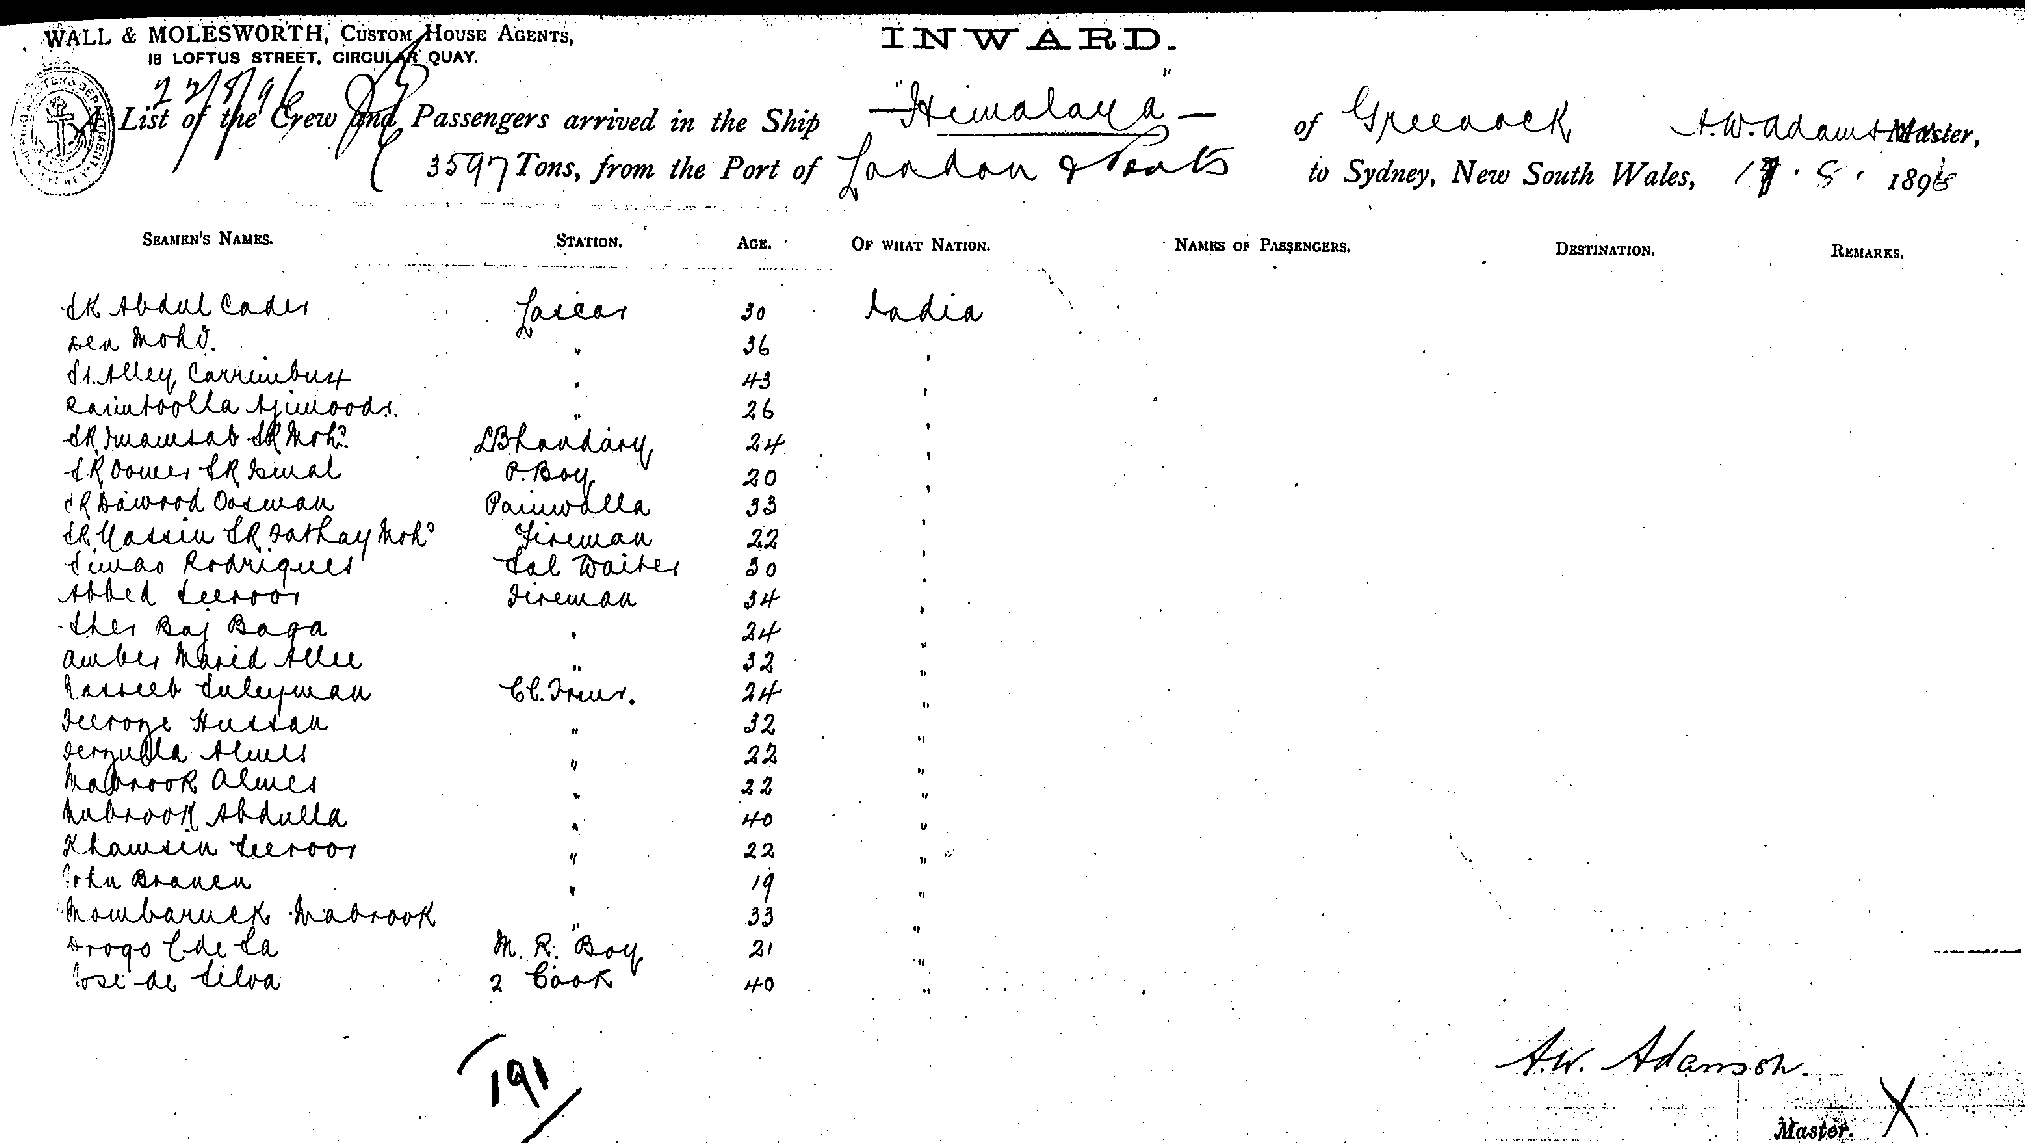 WALL & MOLESWORTH, CUSTOM HOUSE AGENTS,
18 LOFTUS STREET, CIRCULAR QUAY.
INWARD.
22/8/96
A List of the Crew and Passengers arrived in the Ship "Himalaya" of Greenock A.W. Adamson Master,
3597 Tons, from the Port of London & Ports to Sydney, New South Wales, 17.8.1896
SEAMEN'S NAMES. STATION. AGE. OF WHAT NATION. NAMES OF PASSENGERS. DESTINATION. REMARKS.
SK Abdul Cader Lascar 30 India
Den Mohd. " 36 "
Sk Alley Carrimbux " 43 "
" 26 "
SK Imamsab SK Mohd. Bhandary 24 "
SK Oomer SK Ismal P. Boy 20 "
SK Dawood Oosman Paniwalla 33 "
SK Yassin SK Fathay Mohd Fireman 22 "
Simao Rodrigues Sal Waiter 30 "
Abbed Seeroor Fireman 34 "
Sher Baj Baga " 24 "
Amber Marid Allee " 32 "
Nasseeb Suleyman CC. Trmr. 24 "
Feeroze Hussan " 32 "
Ferzulla Almes " 22 "
Mabrook Almes " 22 "
Mubrook Abdulla " 40 "
Khamsin Seeroor " 22 "
John Braven " 19 "
Mombaruck Mabrook " 33 "
Drogo C de Sa M. R. Boy 21 "
Jose de Silva 2 Cook 40 "
191
A.W. Adamson.
Master.
X